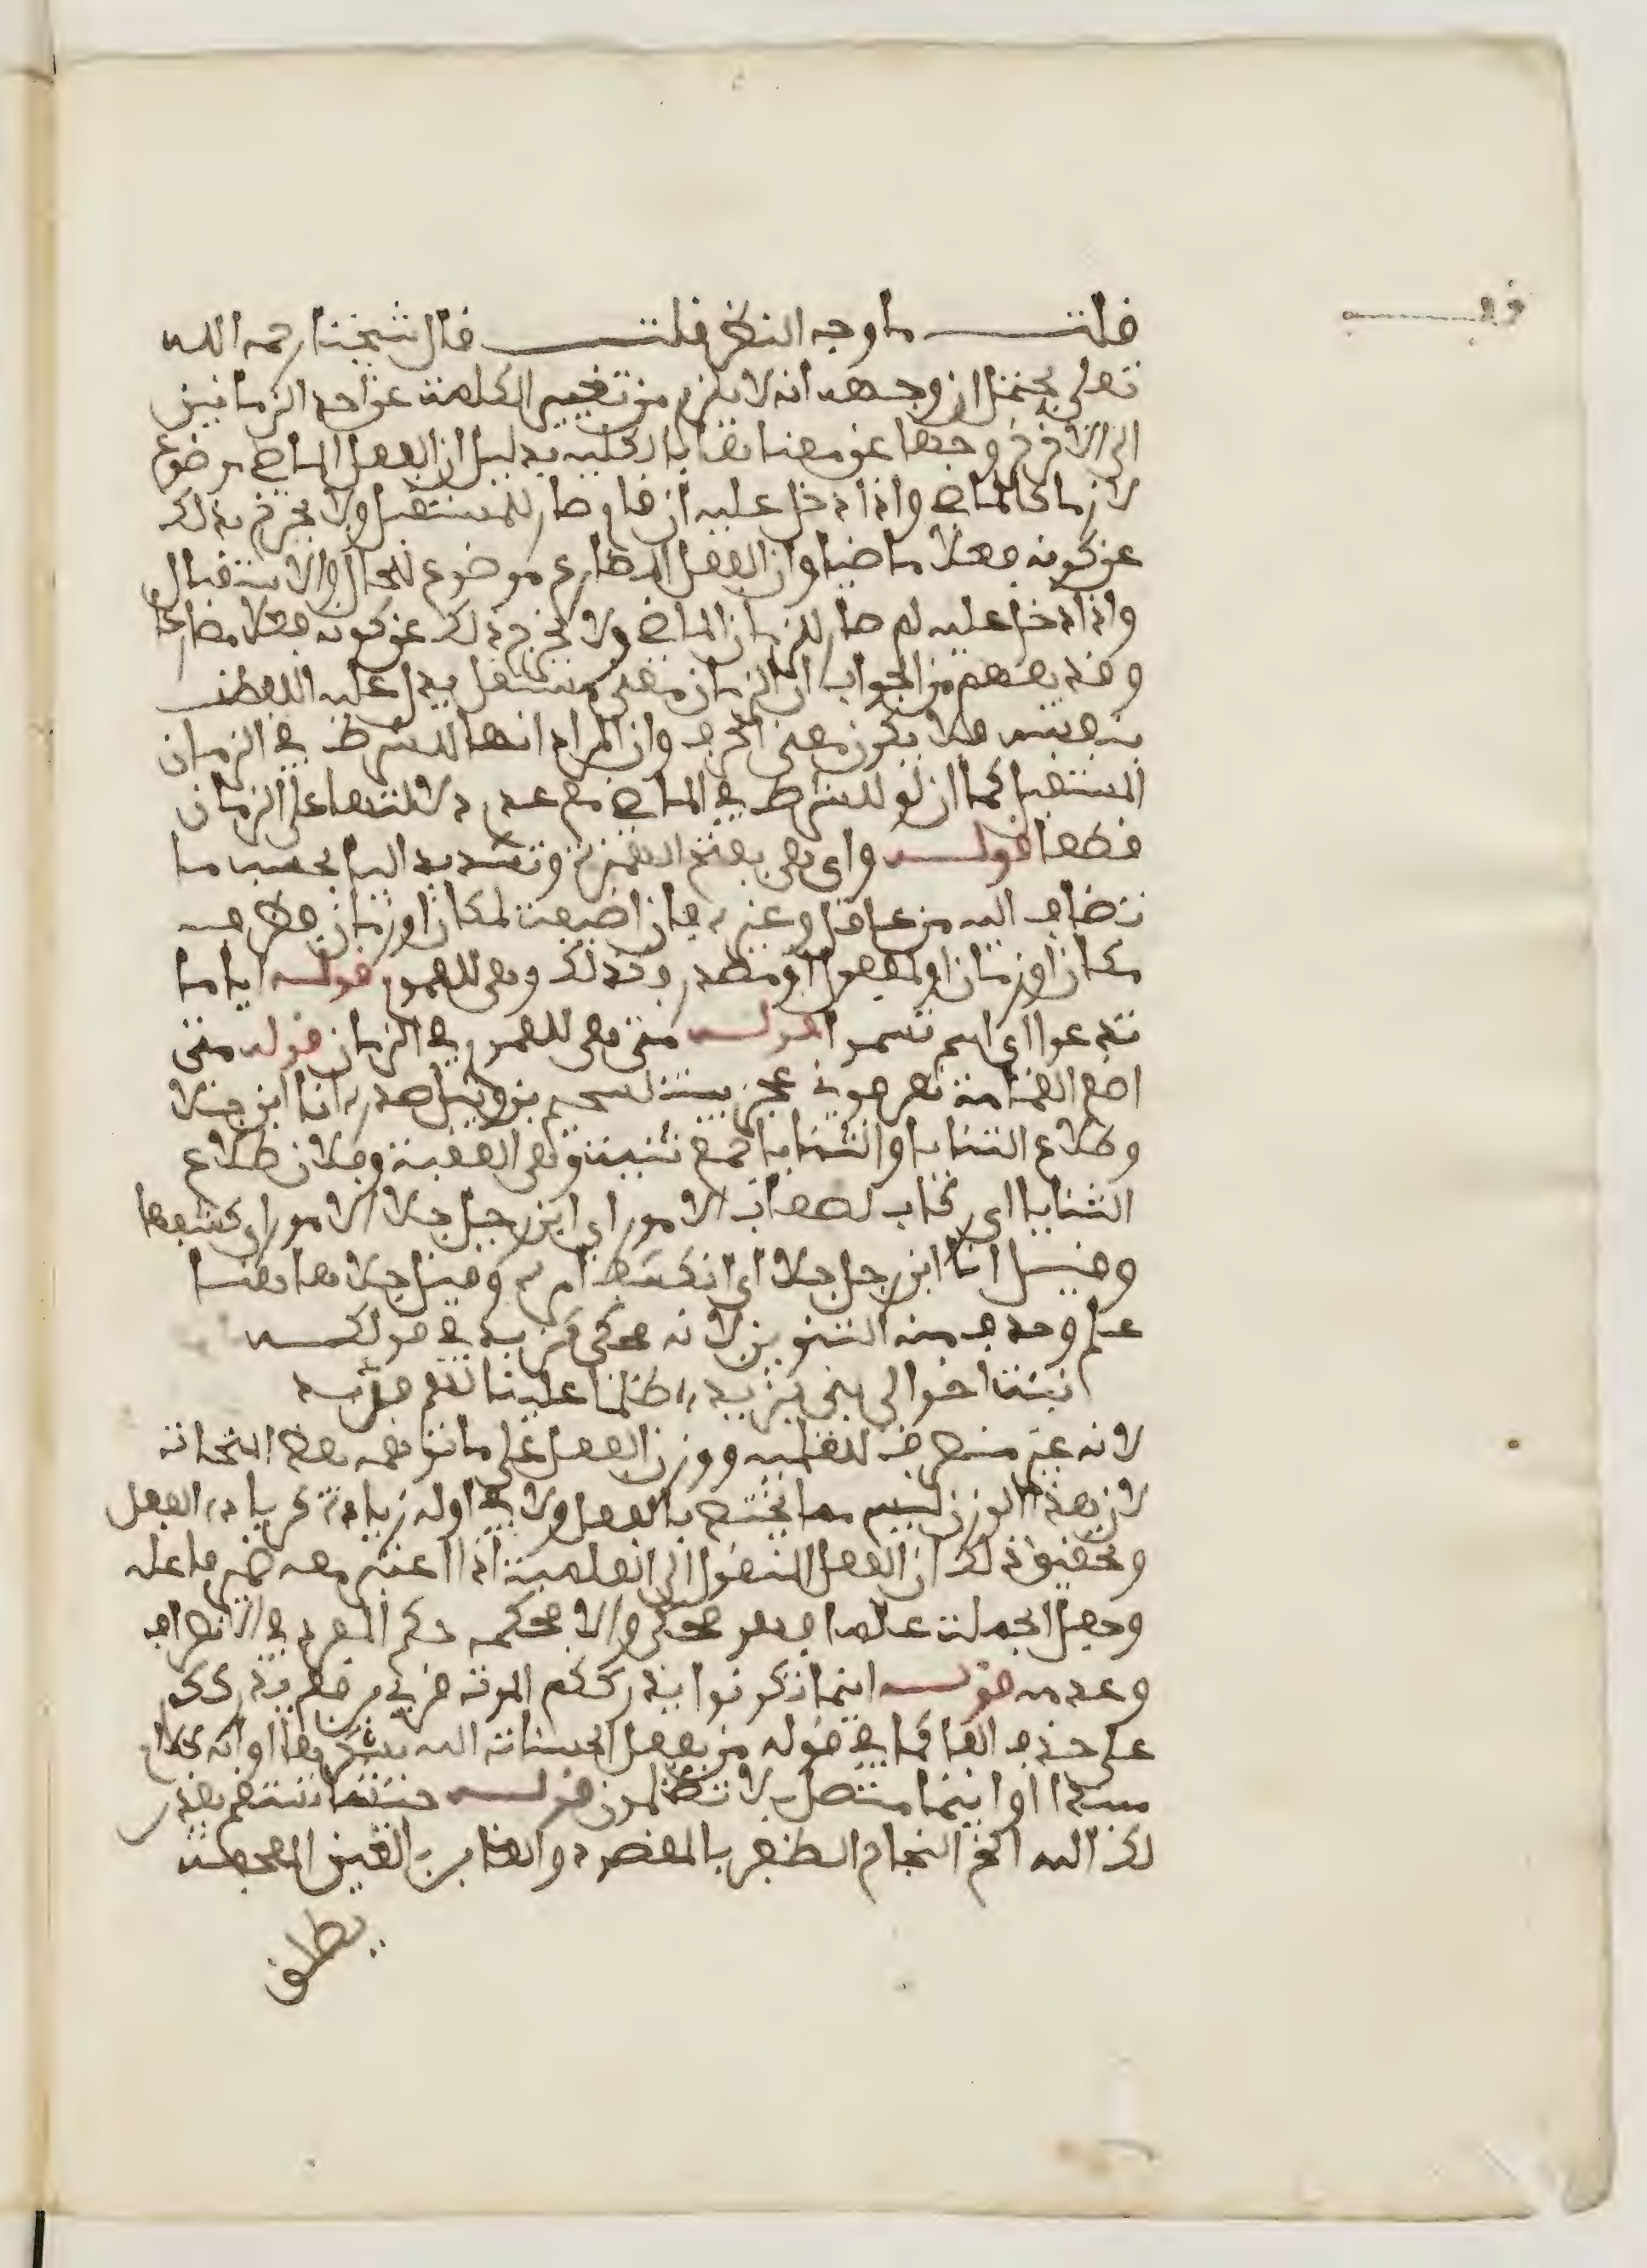 قلت ما وجه النظر قلت قال شيخنا رحمه الله
تعلى يحتمل ان وجهه انه لا يلزم من تغيير الكلمة عن احد الزمانين
الى الاخر خروجها عن معناها بالكلية بدليل ان الفعل الماضي موضوع
لزمان الماضي واذا دخل عليه ان قام صار للمستقبل ولا يخرج بذلك
عن كونه فعلا ماضيا وان الفعل المضارع موضوع للحال والاستقبال
واذا دخل عليه لم صار للزمان الماضي ولا يخرج بذلك عن كونه فعلا مضارعا
وقد يفهم من الجواب ان الزمان معنى مستقل يدل عليه اللفظ
بنفسه فلا يكون معنى الحرف وان المراد انها للشرط في الزمان
المستقبل كما ان لو للشرط في الماضي مع عدم دلالتها على الزمان
قطعا قوله واي هي بفتح الهمزة وتشديد اليا بحسب ما
تضاف اليه من عاقل وغيره فان اضيفت لمكان او زمان فظرف
مكان او زمان او لمفعول او مصدر وكذلك وهي للعموم قوله ايا ما
تدعوا اي اسم تسموا قوله متى هي للعموم في الزمان قوله متى
اضع العمامة تعرفوني عجز بيت لسحيم بن وثيل صدره انا ابن جلا
وطلاع الثنايا والثنايا جمع ثنية وهي العقبة وفلان طلاع
الثنايا اي ركاب لصعاب الامور اي ابن رجل جلا الامور اي كشفها
وقيل انا ابن رجل جلا اي انكشف امره وقيل جلا هاهنا
علم وحذف منه التنوين لانه محكي كيزيد في قولك
نبئت اخوالي بني يزيد ظلما علينا لهم فديد
لانه غير منصرف للعلمية ووزن الفعل على ما توهمه بعض النحاة
لان هذا الوزن ليس مما يختص بالفعل ولا في اوله زيادة كزيادة الفعل
وتحقيق ذلك ان الفعل المنقول الى العلمية اذا اعتبر معه ضمير فاعله
وجعل الجملة علما فهو محكي والا فحكمه حكم المفرد في الانصراف
وعدمه قوله اينما تكونوا يدرككم الموت قرئ برفع يدرككم
على حذف الفا كما في قوله من يفعل الحسنات الله يشكرها او انه كلام
مبتدا او اينما متصل بلا تظلمون قوله حيثما تستقم يقدر
لك الله الخ النجاح الظفر بالمقصود والغابر بالغين المعجمة
يطلق